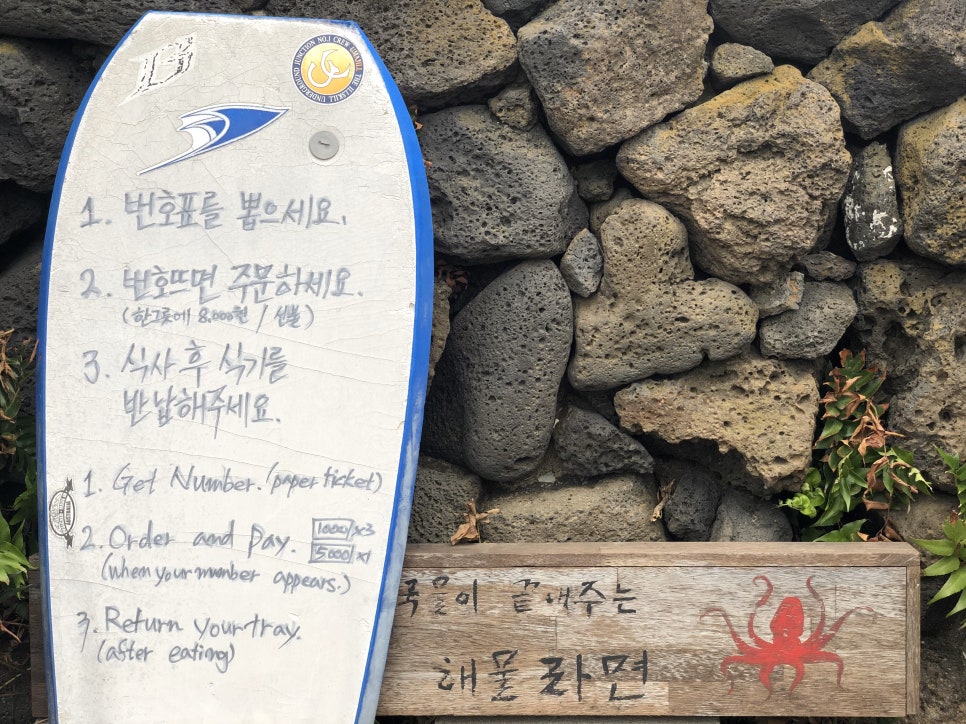 1. 번호표를 뽑으세요.
2. 번호뜨면 주문하세요.
(한그릇에 8,000원 / 선불)
3. 식사 후 식기를
반납해주세요.
1. Get Number. (paper ticket)
2. Order and Pay. 1000/x3
5000/x1
(when your number appears.)
3. Return your tray.
(after eating)
국물이 끝내주는
해물라면